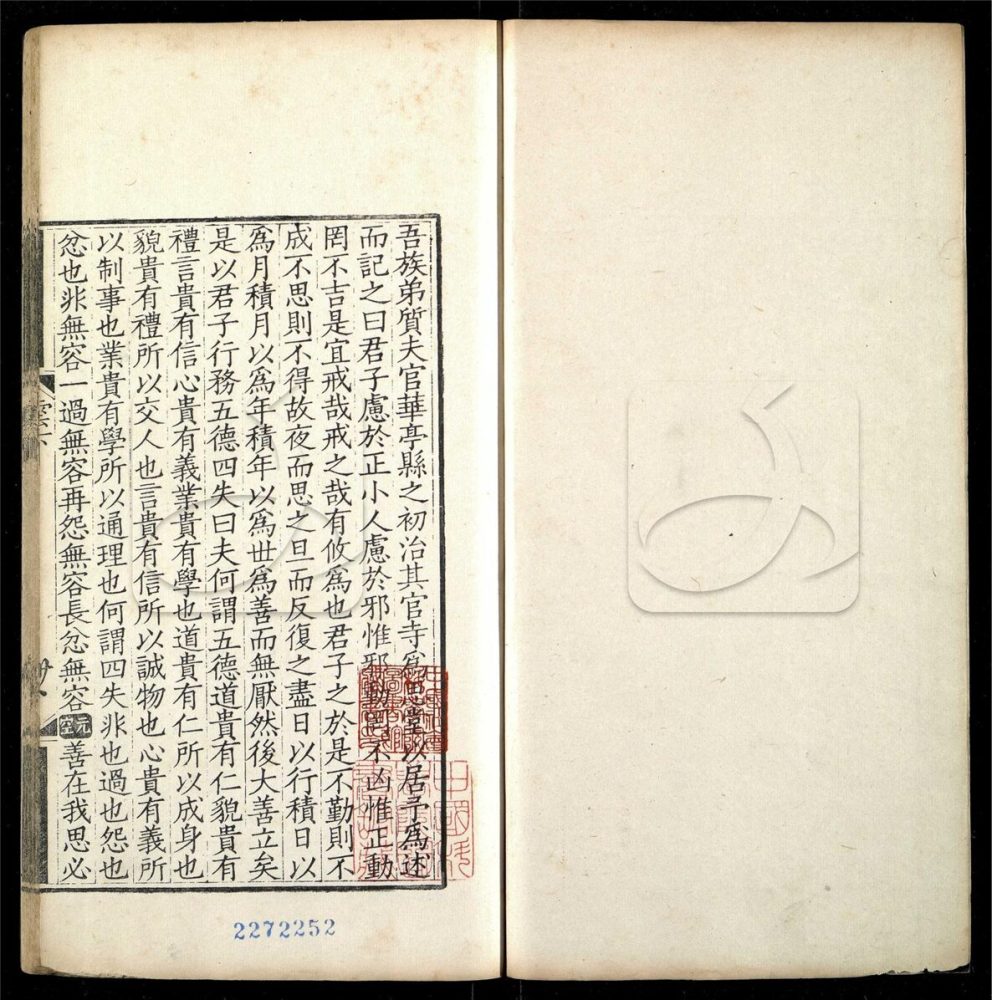 吾族弟質夫官華亭縣之初治其官寺爲思堂以居予爲述
而記之曰君子慮於正小人慮於邪惟邪動罔不凶惟正動
罔不吉是宜戒哉戒之哉有攸爲也君子之於是不勤則不
成不思則不得故夜而思之旦而反復之盡日以行積日以
爲月積月以爲年積年以爲世爲善而無厭然後大善立矣
是以君子行務五德四失曰夫何謂五德道貴有仁貌貴有
禮言貴有信心貴有義業貴有學也道貴有仁所以成身也
貌貴有禮所以交人也言貴有信所以誠物也心貴有義所
以制事也業貴有學所以通理也何謂四失非也過也怨也
忿也非無容一過無容再怨無容長忿無容元空善在我思必
雲下
2272252